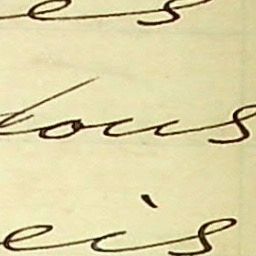 es
ous
eis